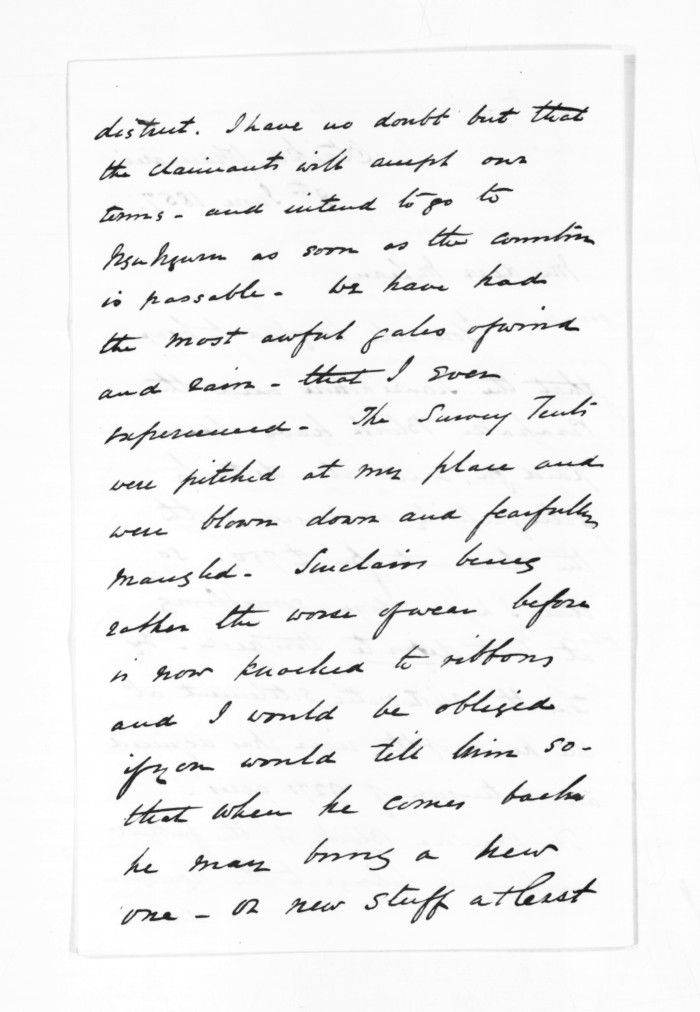 district. I have no doubt but that
the claimants will accept our
terms - and intend to go to
Ngunguru as soon as the country
is passable - We have had
the most awful gales of wind
and rain - that I ever
experienced - The Survey Tents
were pitched at my place and
were blown down and fearfully
mangled - Sinclairs being
rather the worse of wear before
is now knocked to ribbons
and I would be obliged
if you would tell him so -
that when he comes back
he may bring a new
one - or new stuff at least